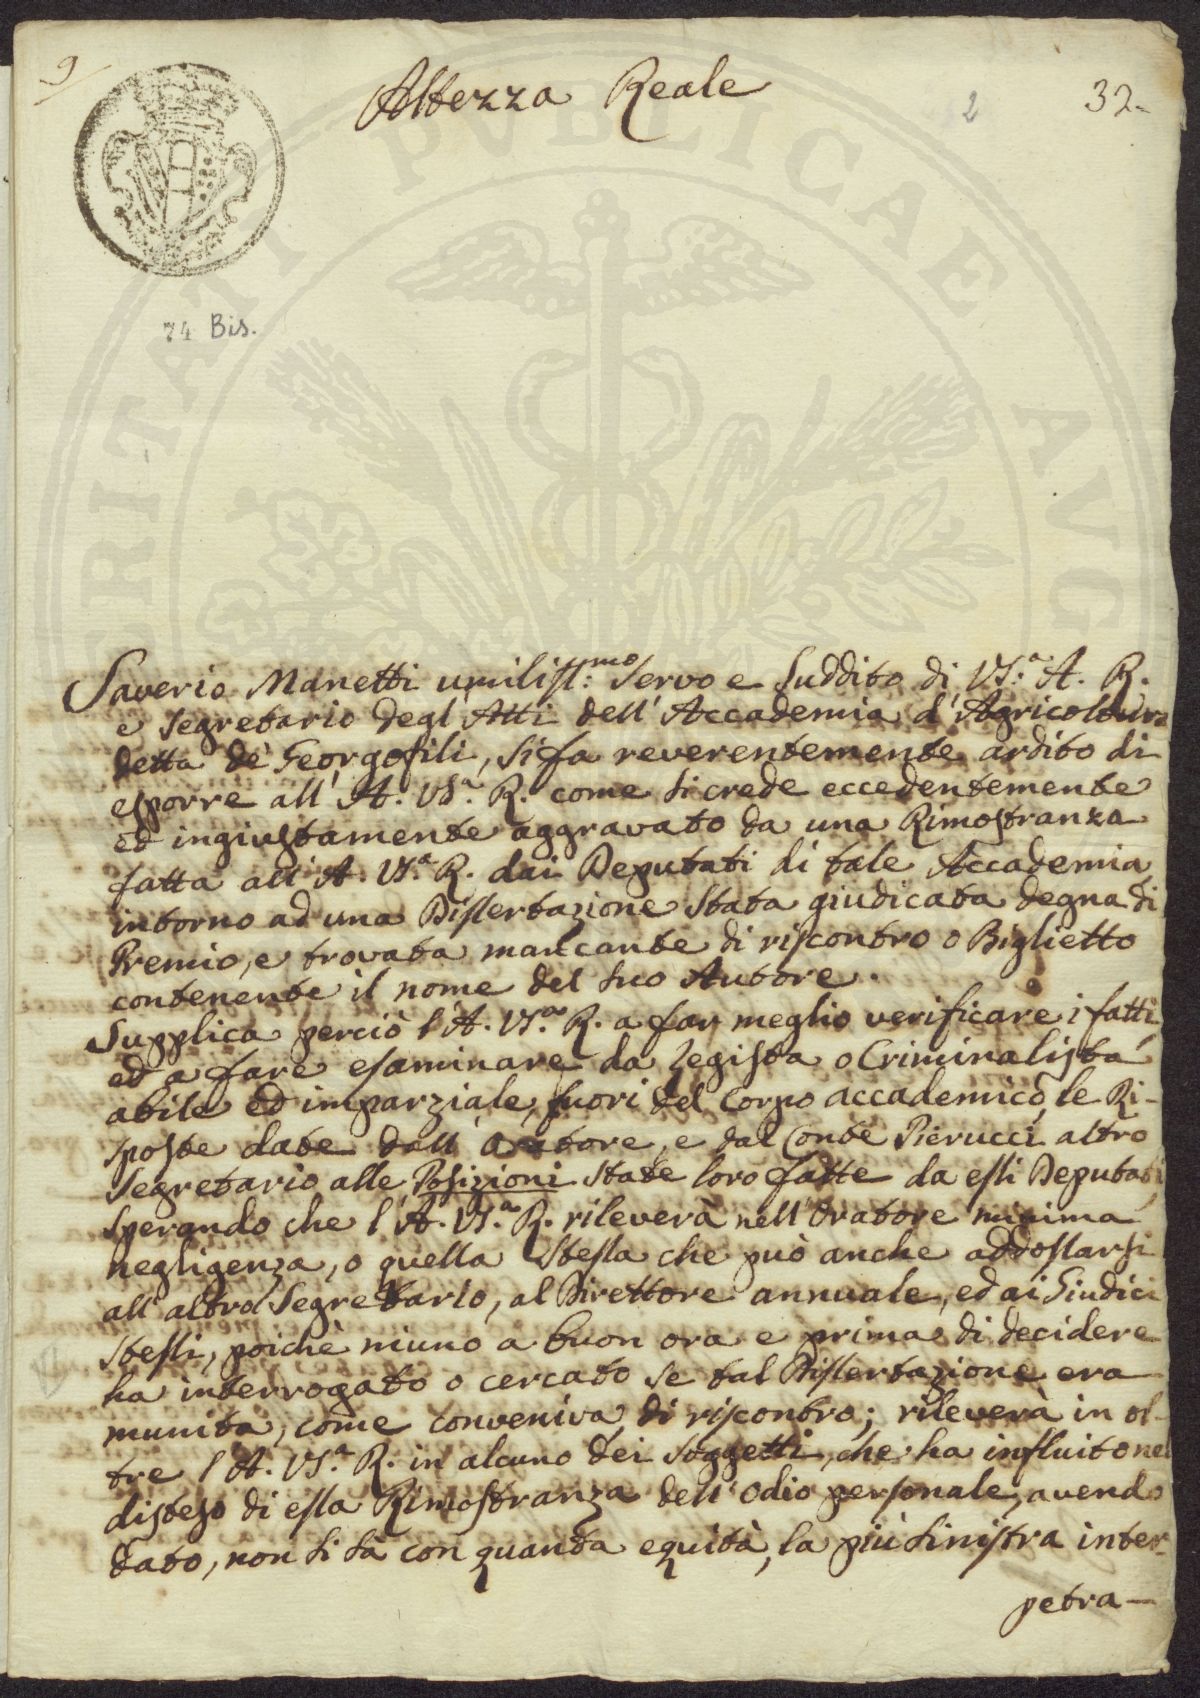 9
Altezza Reale
2
32.
74 Bis.
PVBLICAE
Saverio Manetti umiliss:mo Servo e Suddito di Vs:a A. R.
e Segretario degl'Atti dell'Accademia d'Agricoltura
detta de' Georgofili, si fa reverentemente ardito di
esporre all'A. Vs.a R. come si crede eccedentemente
ed ingiustamente aggravato da una Rimostranza
fatta all'A. Vs.a R. dai Deputati di tale Accademia
intorno ad una Dissertazione stata giudicata degna di
Premio, e trovata mancante di riscontro o Biglietto
contenente il nome del suo Autore.
Supplica perciò l'A. Vs.a R. a far meglio verificare i fatti
ed a fare esaminare da Legista o Criminalista
abile ed imparziale, fuori del Corpo accademico, le Ri-
sposte date dall'Oratore, e dal Conte Pierucci altro
Segretario alle Posizioni state loro fatte da essi Deputati
sperando che l'A. Vs.a R. rileverà nell'Oratore minima
negligenza, o quella stessa che può anche addossarsi
all'altro Segretario, al Direttore annuale, ed ai Giudici
stessi, poichè niuno a buon ora e prima di decidere
ha interrogato o cercato se tal Dissertazione era
munita, come conveniva, di riscontro; rileverà in ol-
tre l'A. Vs.a R. in alcuno dei soggetti, che ha influito nel
disteso di essa Rimostranza dell'odio personale, avendo
dato, non si sà con quanta equità, la più sinistra inter-
petra-